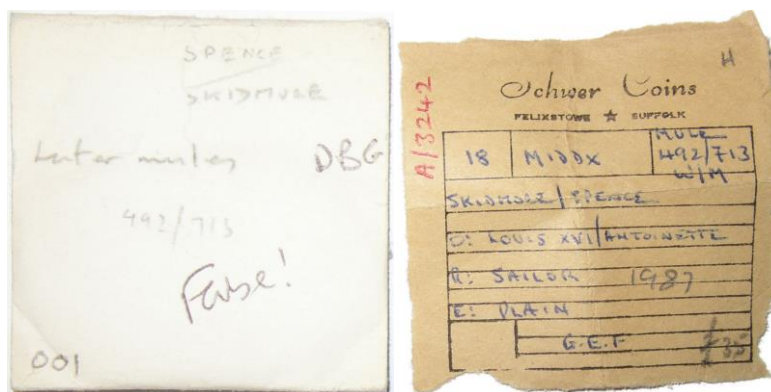 SPENCE
SKIDMORE
Later mules DBG
492/713
False!
001
A/3242
H
Schwer Coins
FELIXSTOWE ★ SUFFOLK
18 MIDDX MULE 492/713 W/M
SKIDMORE/SPENCE
O: LOUIS XVI/ANTOINETTE
R: SAILOR 1987
E: PLAIN
G.E.F £35